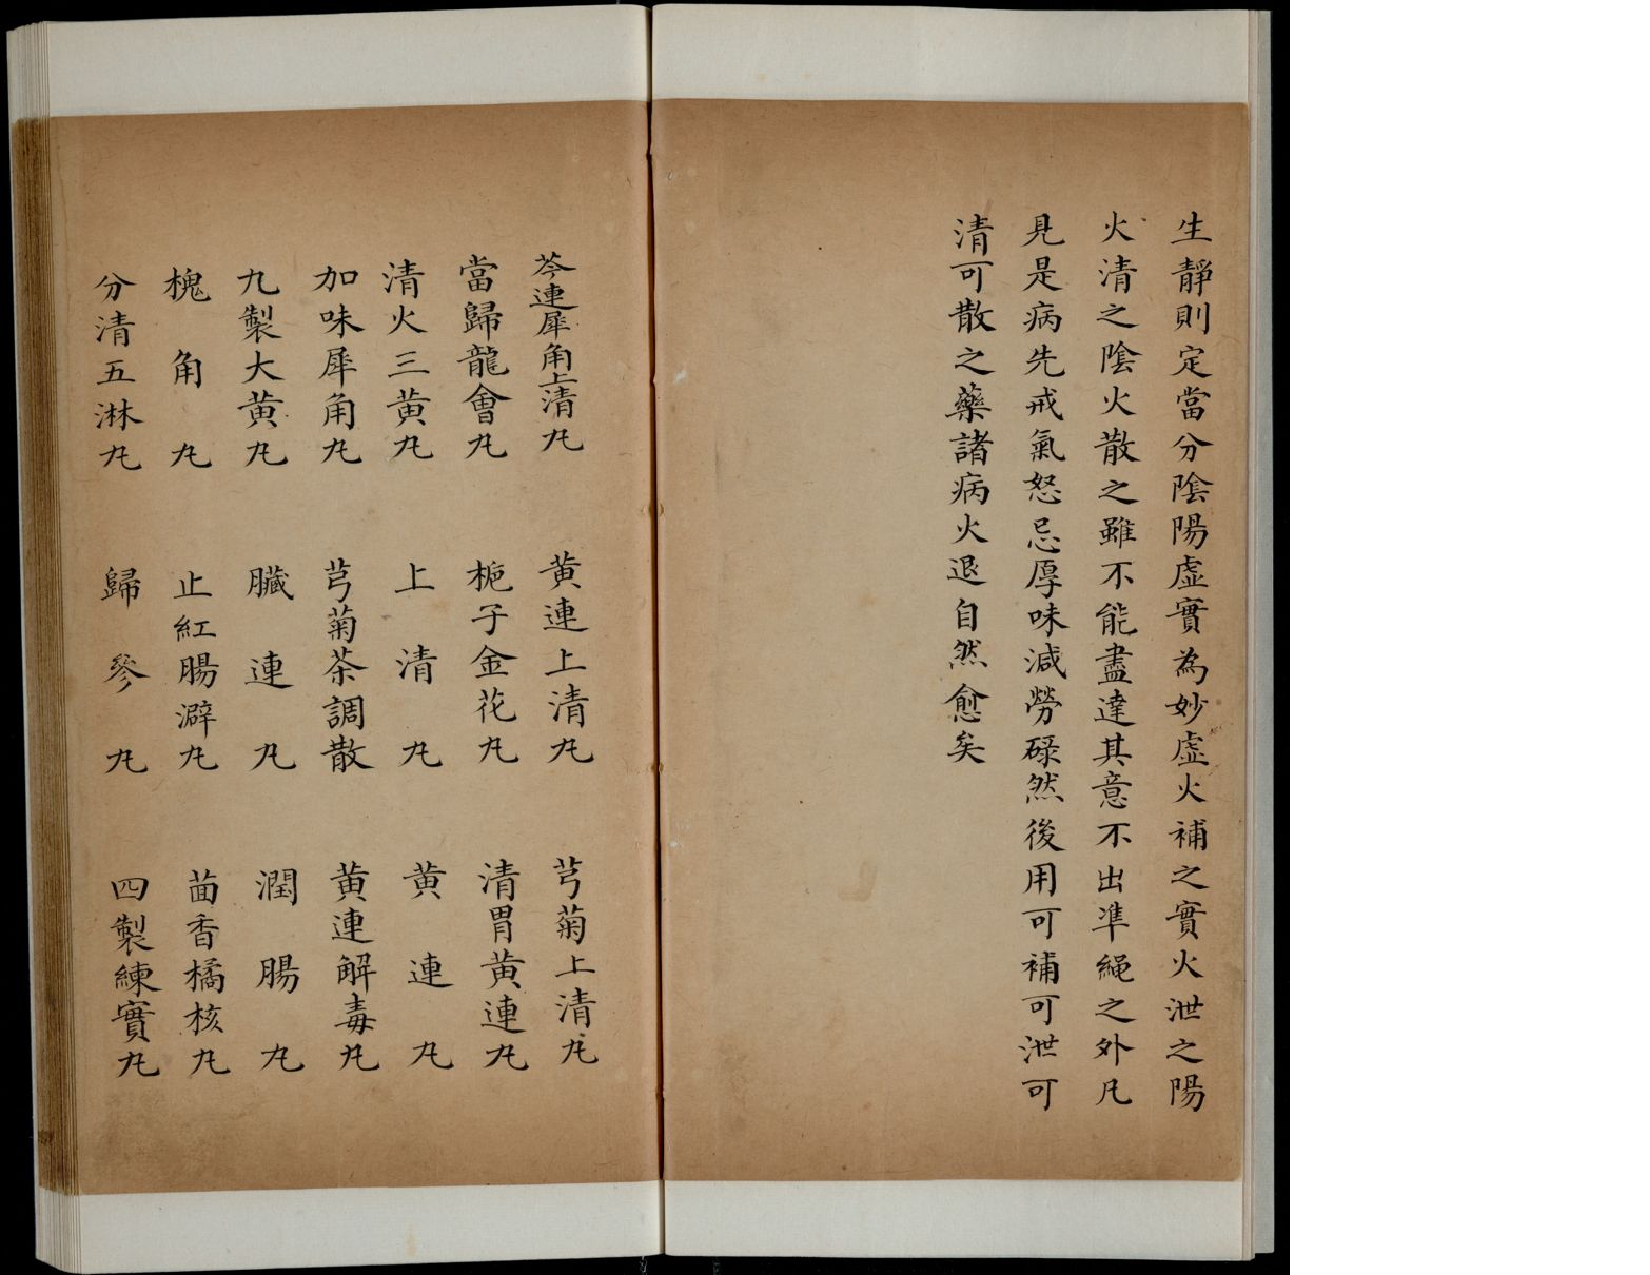 生靜則定當分陰陽虛實為妙虛火補之實火泄之陽
火清之陰火散之雖不能盡達其意不出準繩之外凡
見是病先戒氣怒忌厚味減勞碌然後用可補可泄可
清可散之藥諸病火退自然愈矣
芩連犀角上清丸　黃連上清丸　芎菊上清丸
當歸龍會丸　梔子金花丸　清胃黃連丸
清火三黃丸　上清丸　黃連丸
加味犀角丸　芎菊茶調散　黃連解毒丸
九製大黃丸　臟連丸　潤腸丸
槐角丸　止紅腸澼丸　茴香橘核丸
分清五淋丸　歸參丸　四製練實丸